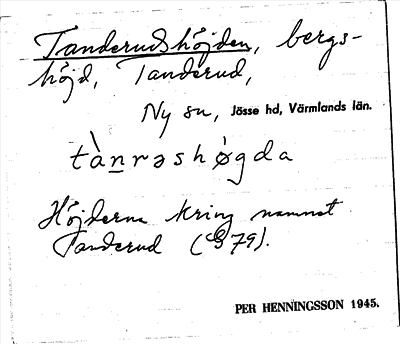 Tanderudshöjden, bergs-
höjd, Tanderud,
Ny sn, Jösse hd, Värmlands län.
tàn̲rəshǿgda
Höjderna kring namnet
Tanderud (GS 79).
PER HENNINGSSON 1945.